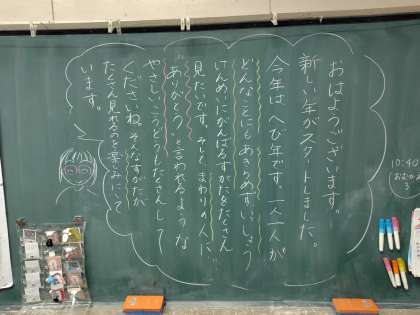 おはようございます。
新しい年がスタートしました。
今年は、へび年です。一人一人が
どんなことにもあきらめず、いっしょう
けんめいにがんばるすがたをたくさん
見たいです。そして、まわりの人に
"ありがとう"と言われるような
やさしいこうどうもたくさんして
くださいね。そんなすがたが
たくさん見れるのを楽しみにして
います。
10:40